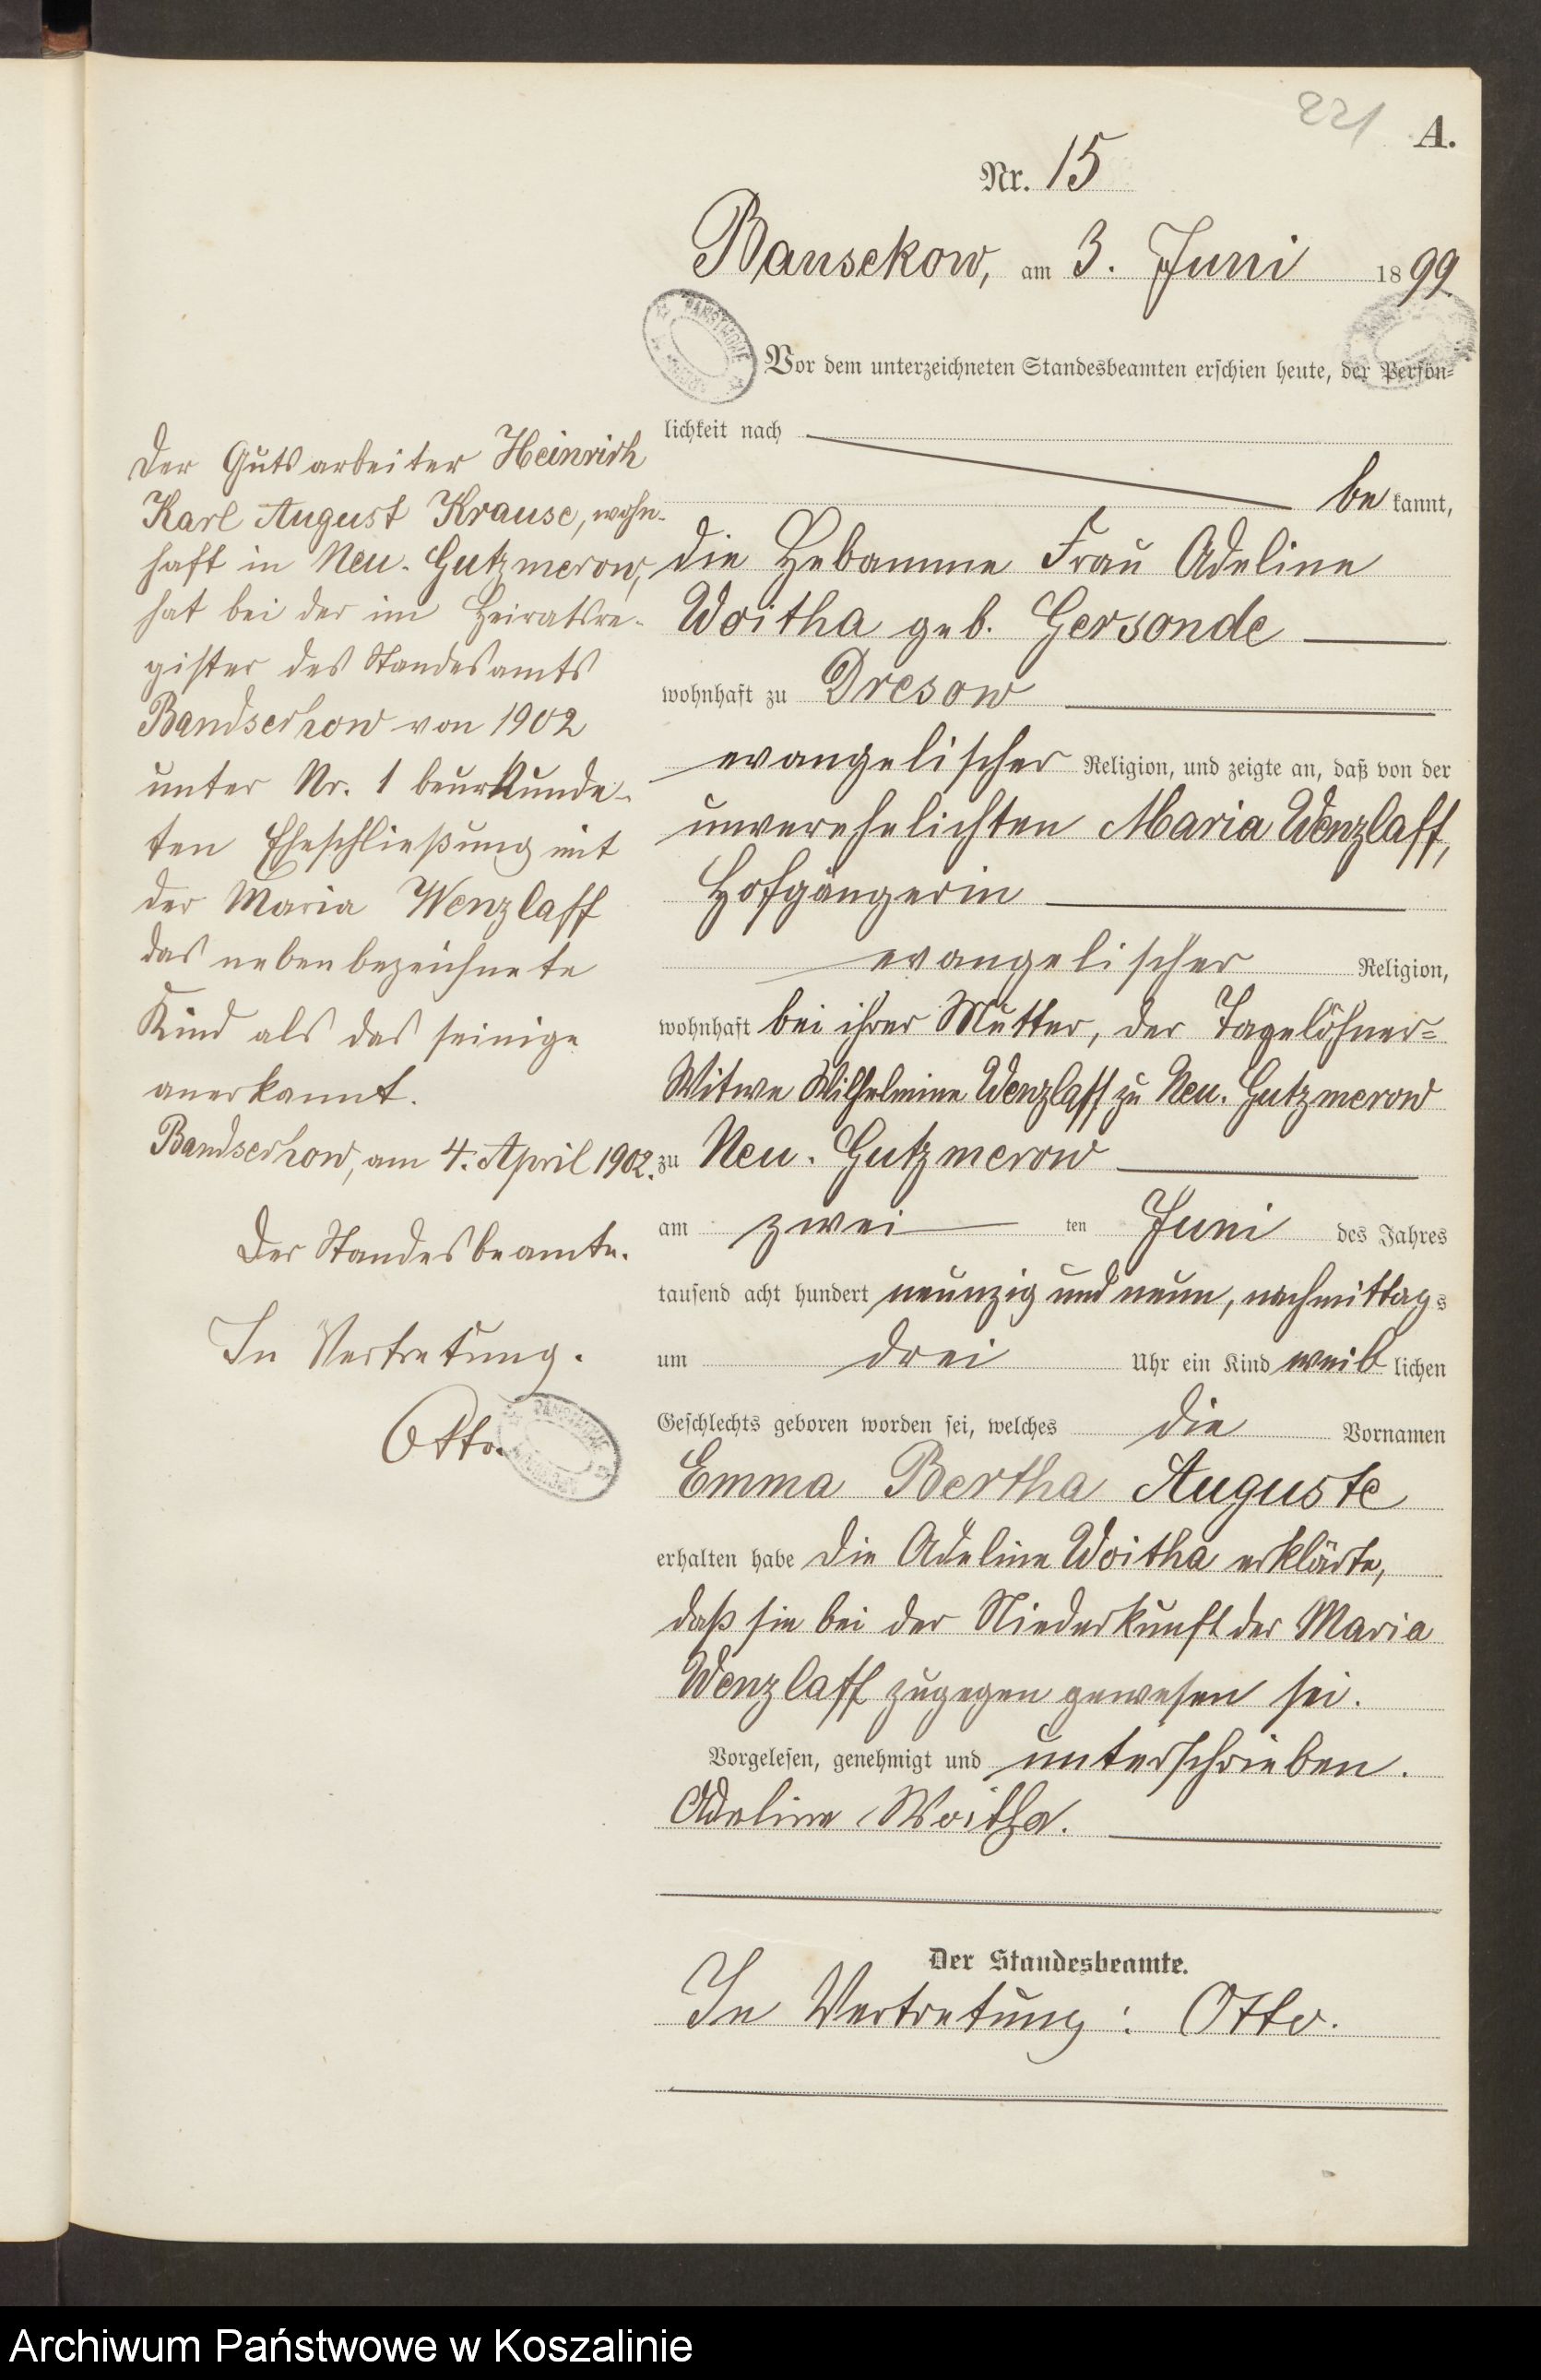 221
A.
Nr. 15
Bansekow, am 3. Juni 1899
Vor dem unterzeichneten Standesbeamten erschien heute, der Persön=
lichkeit nach
be kannt,
die Hebamme Frau Adeline
Woitha geb. Gersonde
wohnhaft zu Dresow
evangelischer Religion, und zeigte an, daß von der
unverehelichten Maria Wenzlaff,
Hofgängerin
evangelischer Religion,
wohnhaft bei ihrer Mutter, der Tagelöhner=
Witwe Wilhelmine Wenzlaff zu Neu. Gutzmerow
zu Neu. Gutzmerow
am zwei ten Juni des Jahres
tausend acht hundert neunzig und neun, nachmittags
um drei Uhr ein Kind weiblichen
Geschlechts geboren worden sei, welches die Vornamen
Emma Bertha Auguste
erhalten habe die Adeline Woitha erklärte,
daß sie bei der Niederkunft der Maria
Wenzlaff zugegen gewesen sei.
Vorgelesen, genehmigt und unterschrieben.
Adeline Woitha.
Der Standesbeamte.
In Vertretung: Otto.
Der Gutsarbeiter Heinrich
Karl August Krause, wohn-
haft in Neu-Gutzmerow,
hat bei der im Heiratsre-
gister des Standesamts
Bandsechow von 1902
unter Nr. 1 beurkunde-
ten Eheschließung mit
der Maria Wenzlaff
das nebenbezeichnete
Kind als das seinige
anerkannt.
Bandsechow, am 4. April 1902.
Der Standesbeamte.
In Vertretung.
Otto.
Archiwum Państwowe w Koszalinie